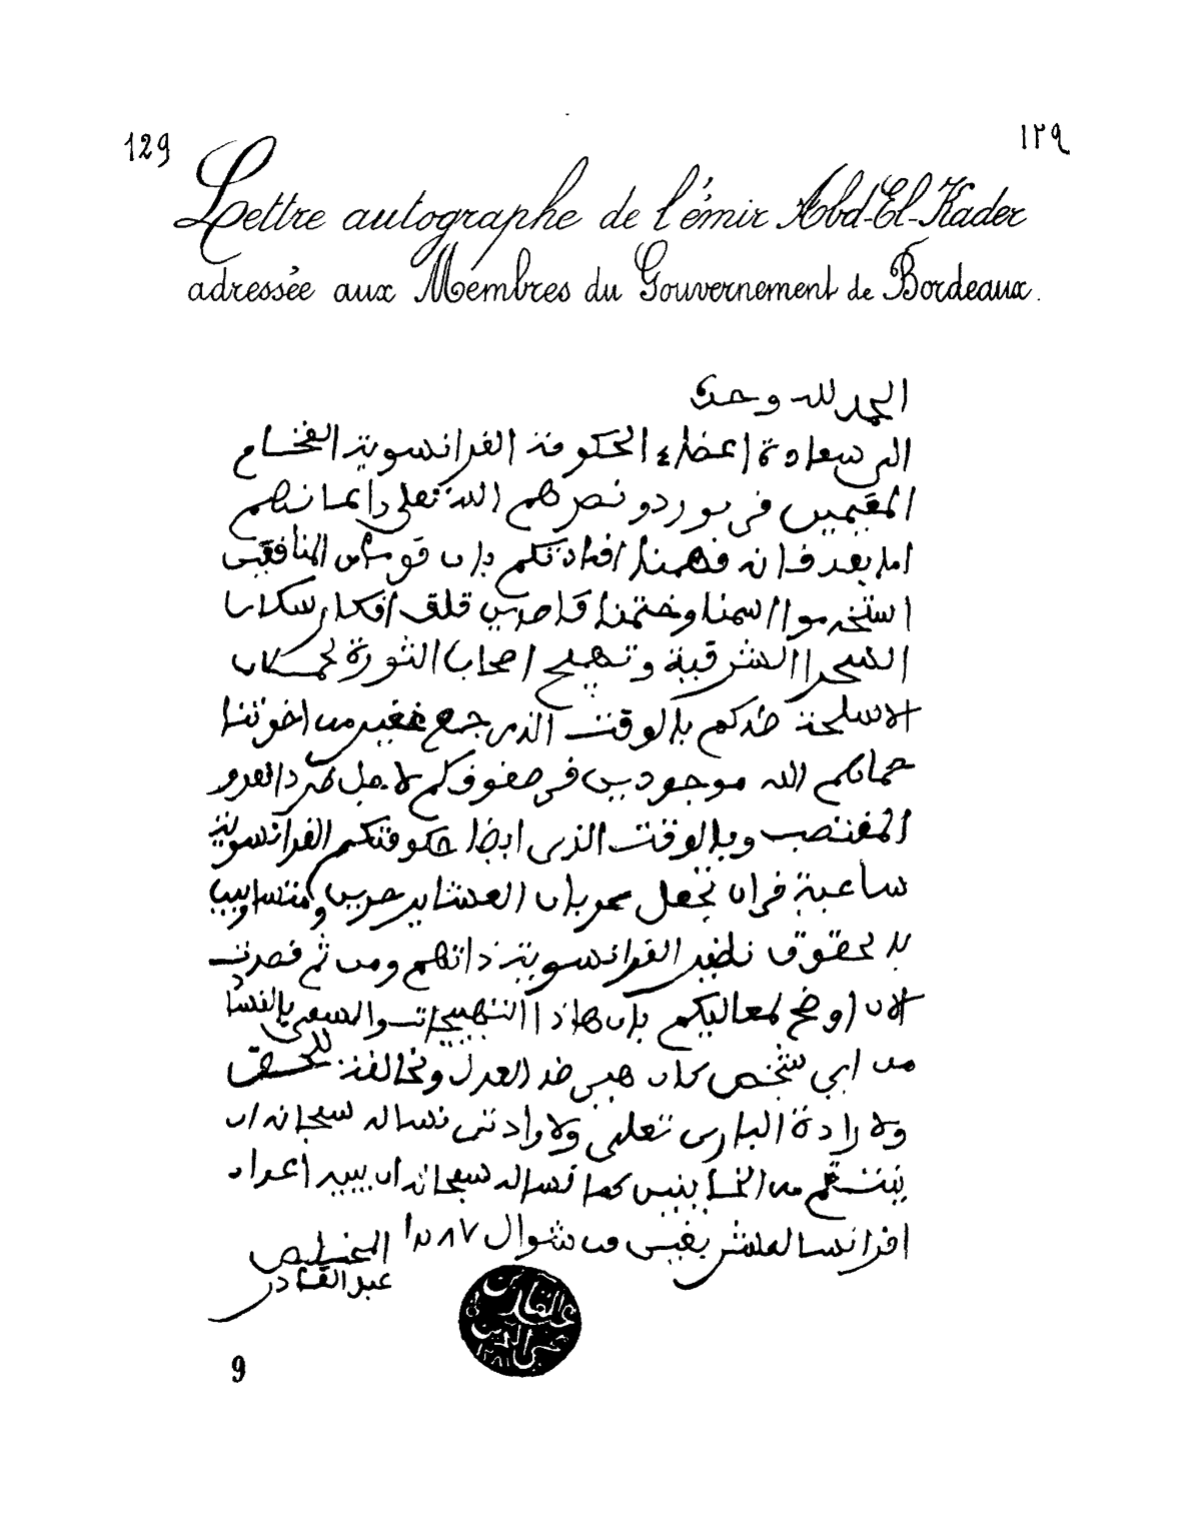 129
١٢٩
Lettre autographe de l'émir Abd-El-Kader
adressée aux Membres du Gouvernement de Bordeaux.
الحمد لله وحده
الى سعادة اعضاء الحكومة الفرانسوية الفخام
المقيمين في بوردو نصرهم الله تعلى دايما
اما بعد فانه فهمنا افادتكم بان قوما من المنافقين
استخدموا اسمنا وختمنا قاصدين قلق افكار سكان
الصحرا الشرقية وتهييج اصحاب الثورة
الاسلحة ضدكم بالوقت الذي جمع غفير من اخوتنا
حماكم الله موجودين في صفوفكم لاجل طرد العدو
المغتصب وبالوقت الذي ايضا حكومتكم الفرانسوية
ساعية في ان تجعل عربان العشاير حرين ومتساويين
بالحقوق نظير الفرانسوية ذاتهم ومن ثم قصدت
الان اوضح لمعاليكم بان هاذا التهييجات والسعي بالفساد
من اي شخص كان هي ضد العدل ومخالفة للحق
ولارادة الباري تعلى ولارادتي نساله سبحانه ان
ينتقم من الخاينين كما نساله سبحانه ان يبيد اعداء
افرانسا لعشر بقين من شوال ٨٧
المخلص
عبد القادر
عبد القادر بن
محي الدين
9